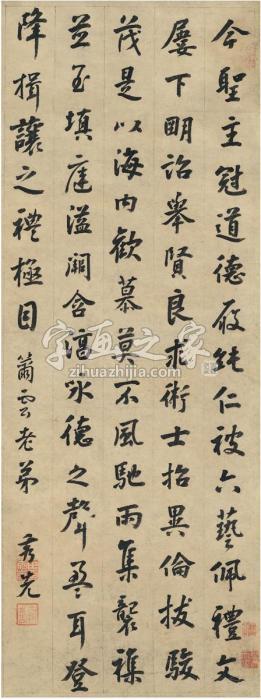 今聖主冠道德履純仁被六藝佩禮文
屢下朙詔舉賢良求術士招異倫拔駿
茂是以海内歡慕莫不風馳雨集襲襍
並至填庭溢闕含淳咏德之聲盈耳登
降揖讓之禮極目 蕭雲老弟 秀先
字画之家
zihuazhijia.com